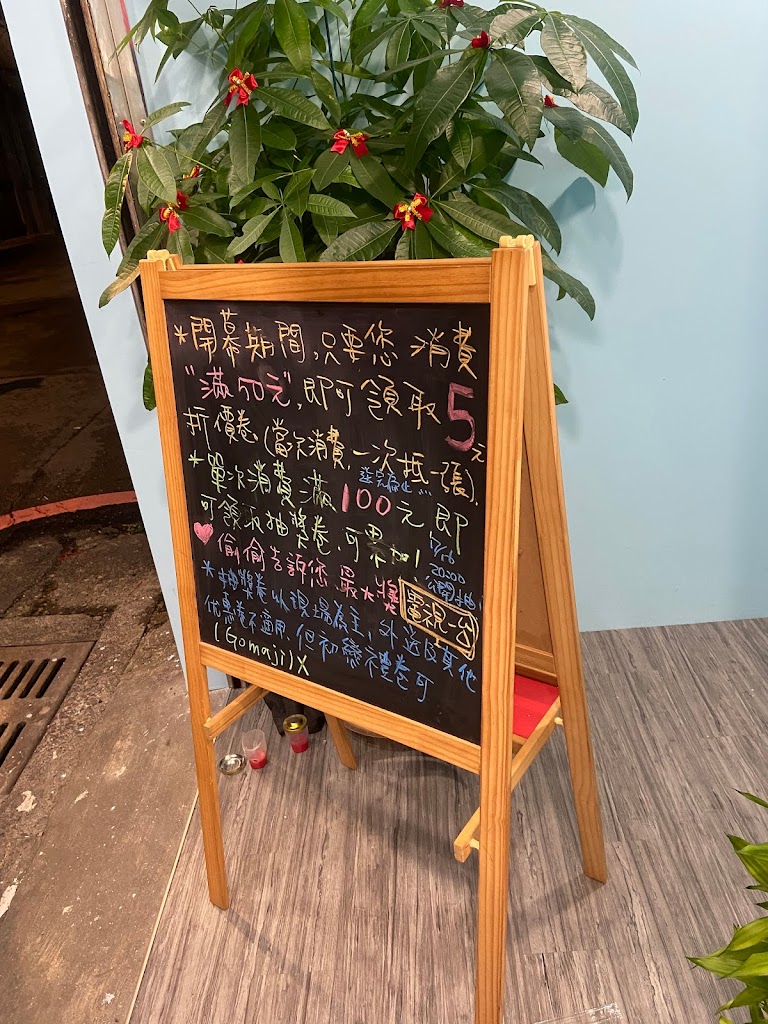 *開幕期間,只要您 消費
"滿50元",即可領取5元
折價卷(當次消費,一次抵一張).
送完為止...
*單次消費滿100元即
可領取抽獎卷.可累加!
♥偷偷告訴您 最大獎 電視一台
20:00
公開抽!
*抽獎卷以現場為主,外送及其他
優惠卷不適用.但初戀禮卷可
(Gomaji)X